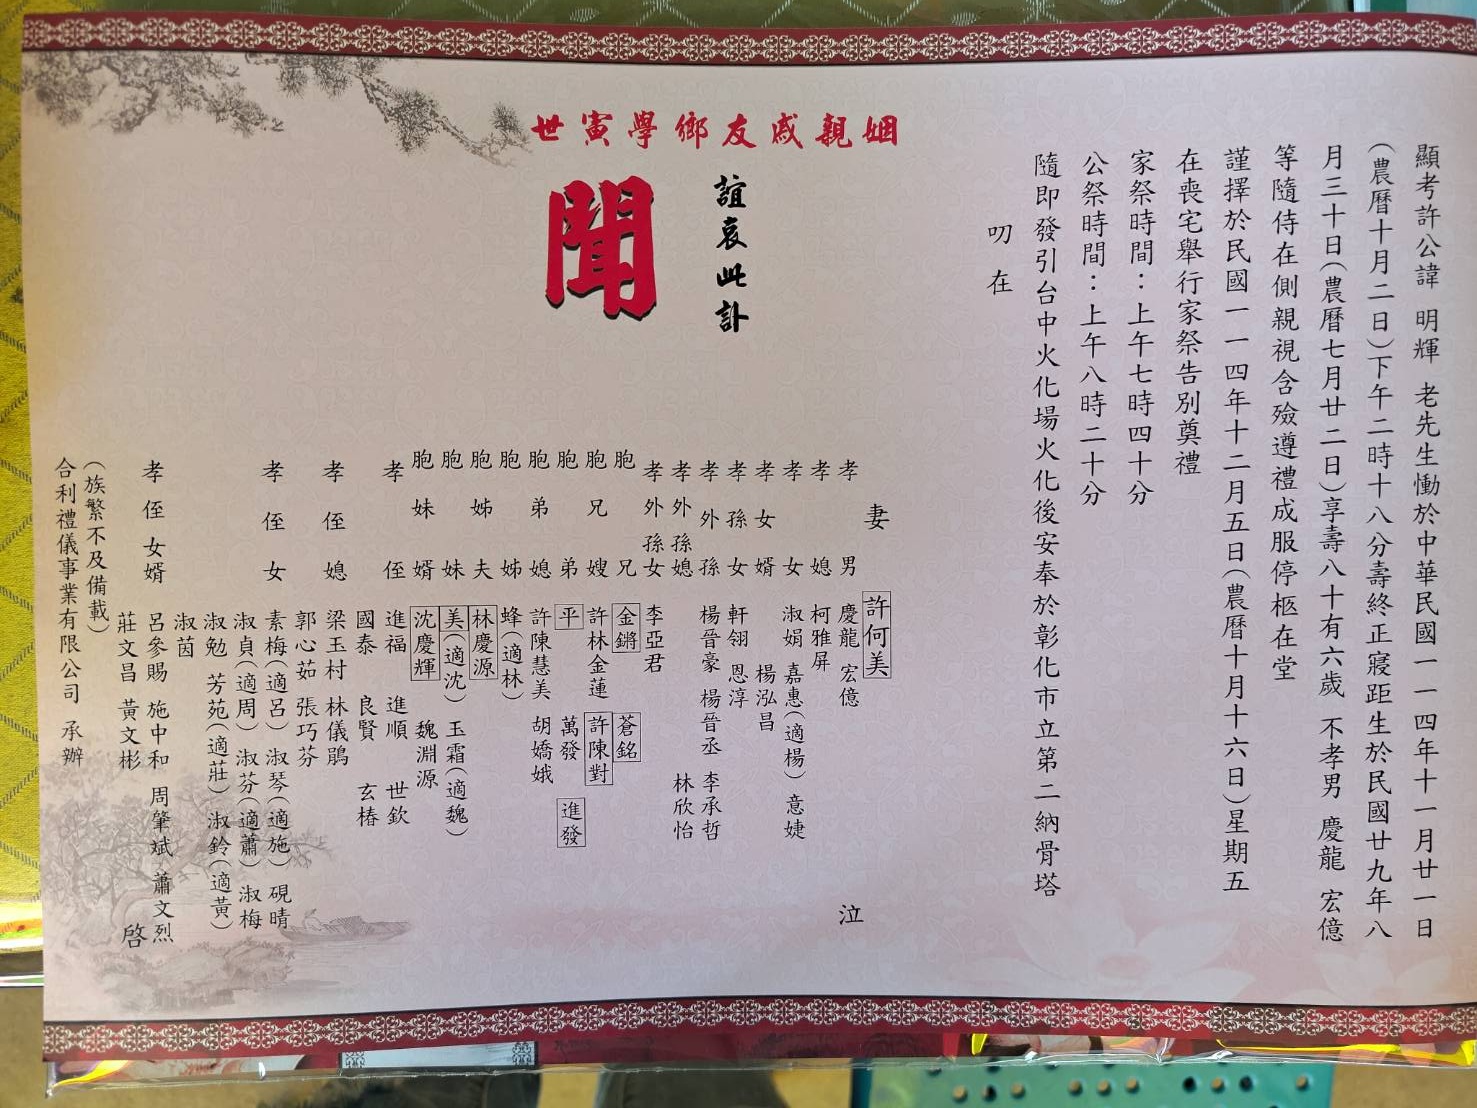 顯考許公諱 明輝 老先生慟於中華民國一一四年十一月廿一日
(農曆十月二日)下午二時十八分壽終正寢距生於民國廿九年八
月三十日(農曆七月廿二日)享壽八十有六歲 不孝男 慶龍 宏億
等隨侍在側親視含殮遵禮成服停柩在堂
謹擇於民國一一四年十二月五日(農曆十月十六日)星期五
在喪宅舉行家祭告別奠禮
家祭時間：上午七時四十分
公祭時間：上午八時二十分
隨即發引台中火化場火化後安奉於彰化市立第二納骨塔
叨在
姻親戚友鄉學寅世
誼哀此訃
聞
妻 許何美
孝男 慶龍 宏億 泣
孝媳 柯雅屏
孝女 淑娟 嘉惠(適楊) 意婕
孝女婿 楊泓昌
孝孫女 軒翎 恩淳
孝外孫 楊晉豪 楊晉丞 李承哲
孝外孫媳 林欣怡
孝外孫女 李亞君
胞兄 金鏘 蒼銘
胞兄嫂 許林金蓮 許陳對
胞弟 平 萬發 進發
胞弟媳 許陳慧美 胡嬌娥
胞姊 蜂(適林)
胞姊夫 林慶源
胞妹 美(適沈) 玉霜(適魏)
胞妹婿 沈慶輝 魏淵源
孝侄 進福 進順 世欽
國泰 良賢 玄椿
孝侄媳 梁玉村 林儀鵑
郭心茹 張巧芬
孝侄女 素梅(適呂) 淑琴(適施) 硯晴
淑貞(適周) 淑芬(適蕭) 淑梅
淑勉 芳苑(適莊) 淑鈴(適黃)
淑茵
孝侄女婿 呂參賜 施中和 周肇斌 蕭文烈
莊文昌 黃文彬 啓
(族繁不及備載)
合利禮儀事業有限公司 承辦